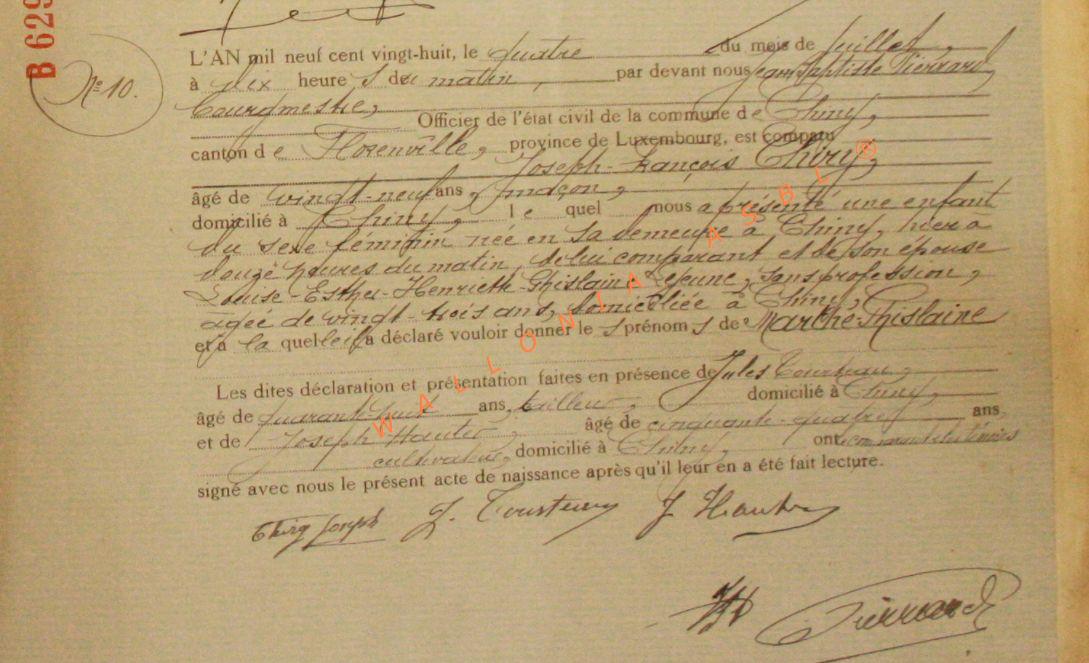 B 629
N° 10.
L'AN mil neuf cent vingt-huit, le quatre du mois de juillet,
à dix heure s du matin, par devant nous Jean-Baptiste Pierrard,
bourgmestre,
Officier de l'état civil de la commune de Chiny,
canton de Florenville, province de Luxembourg, est comparu
Joseph-François Thiry,
âgé de vingt-neuf ans, maçon,
domicilié à Chiny, le quel nous a présenté une enfant
du sexe féminin née en sa demeure à Chiny, hier à
douze heures du matin, de lui comparant et de son épouse
Louise-Esther-Henriette-Ghislaine Lejeune, sans profession,
âgée de vingt-trois ans, domiciliée à Chiny,
et à la quelle il a déclaré vouloir donner le s prénom s de Marthe-Ghislaine
Les dites déclaration et présentation faites en présence de Jules
âgé de quarante-huit ans, tailleur, domicilié à Chiny,
et de Joseph Hautus, âgé de cinquante-quatre ans,
cultivateur, domicilié à Chiny, ont comparant et les témoins
signé avec nous le présent acte de naissance après qu'il leur en a été fait lecture.
Thiry Joseph J. J Hautus
Pierrard
WALLONIA ASBL